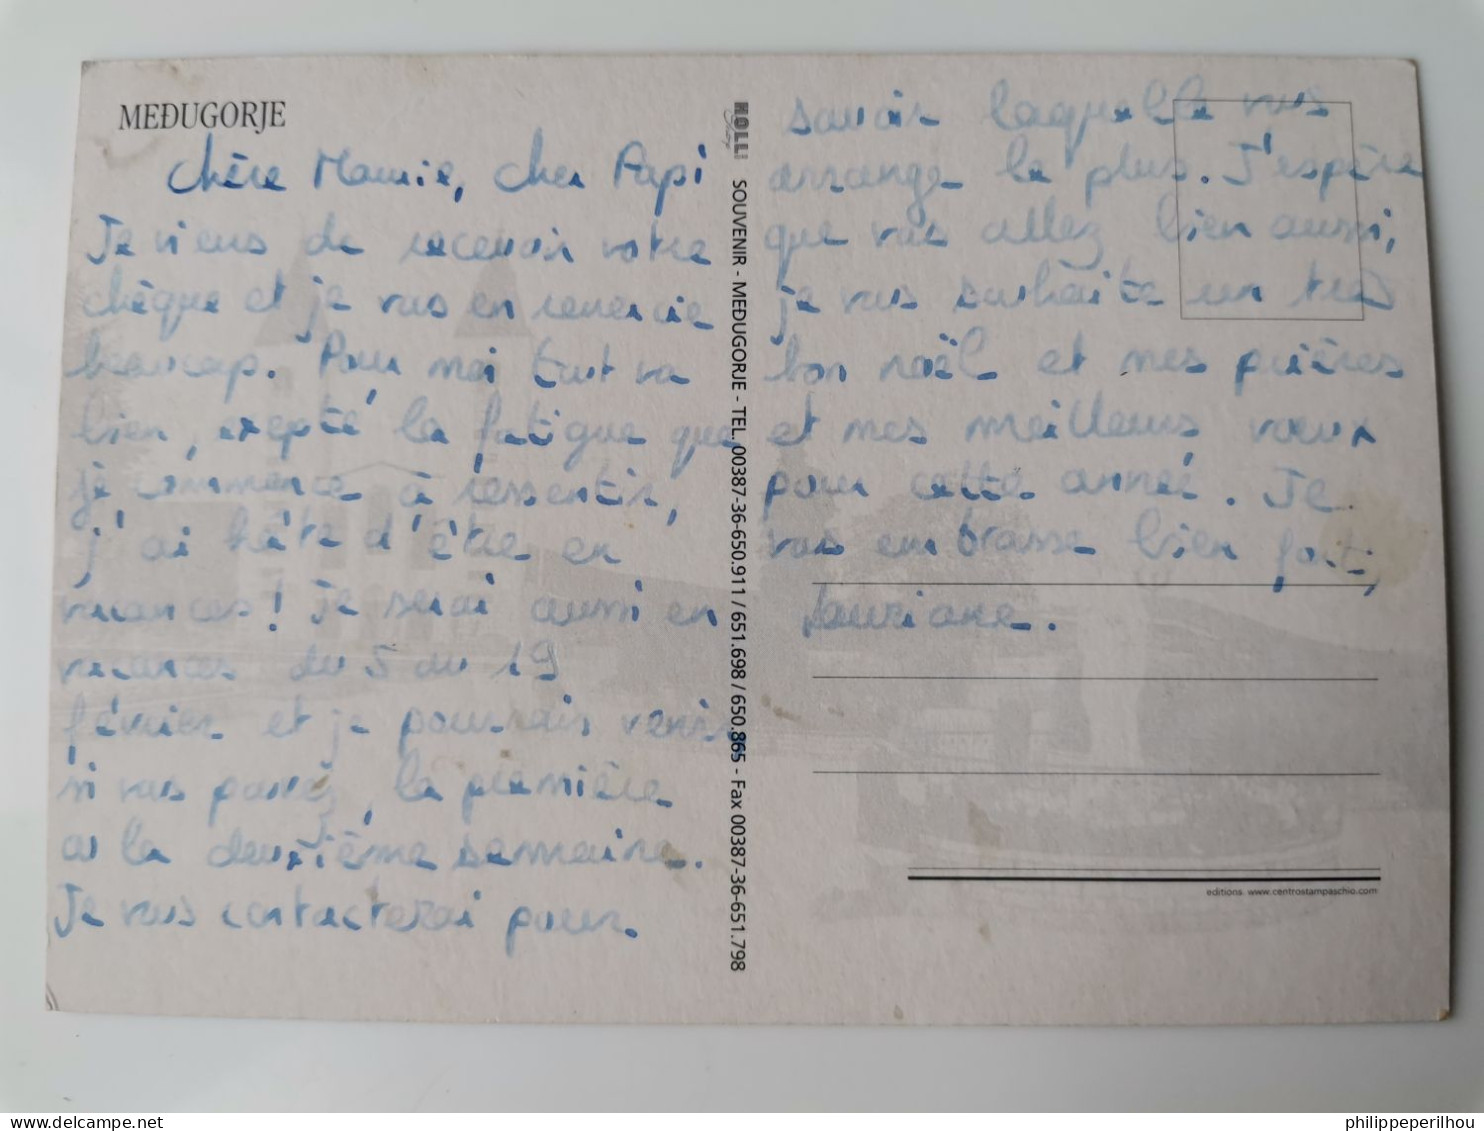 MEĐUGORJE
chère Mamie, cher Papi
Je viens de recevoir votre
chèque et je vous en remercie
beaucoup. Pour moi tout va
bien, exepté la fatigue que
je commence à ressentir,
j'ai hâte d'être en
vacances! Je serai aussi en
vacances du 5 au 19
février et je pourrais venir
si vous pouvez, la première
ou la deuxième semaine.
Je vous contacterai pour
HOLLI
SOUVENIR - MEĐUGORJE - TEL. 00387-36-650.911 / 651.698 / 650.865 - Fax 00387-36-651.798
savoir laquelle vous
arrange le plus. J'espère
que vous allez bien aussi,
je vous souhaite un très
bon noël et mes prières
et mes meilleurs vœux
pour cette année. Je
vous embrasse bien fort,
Lauriane.
editions www.centrostampaschio.com
philippeperilhou